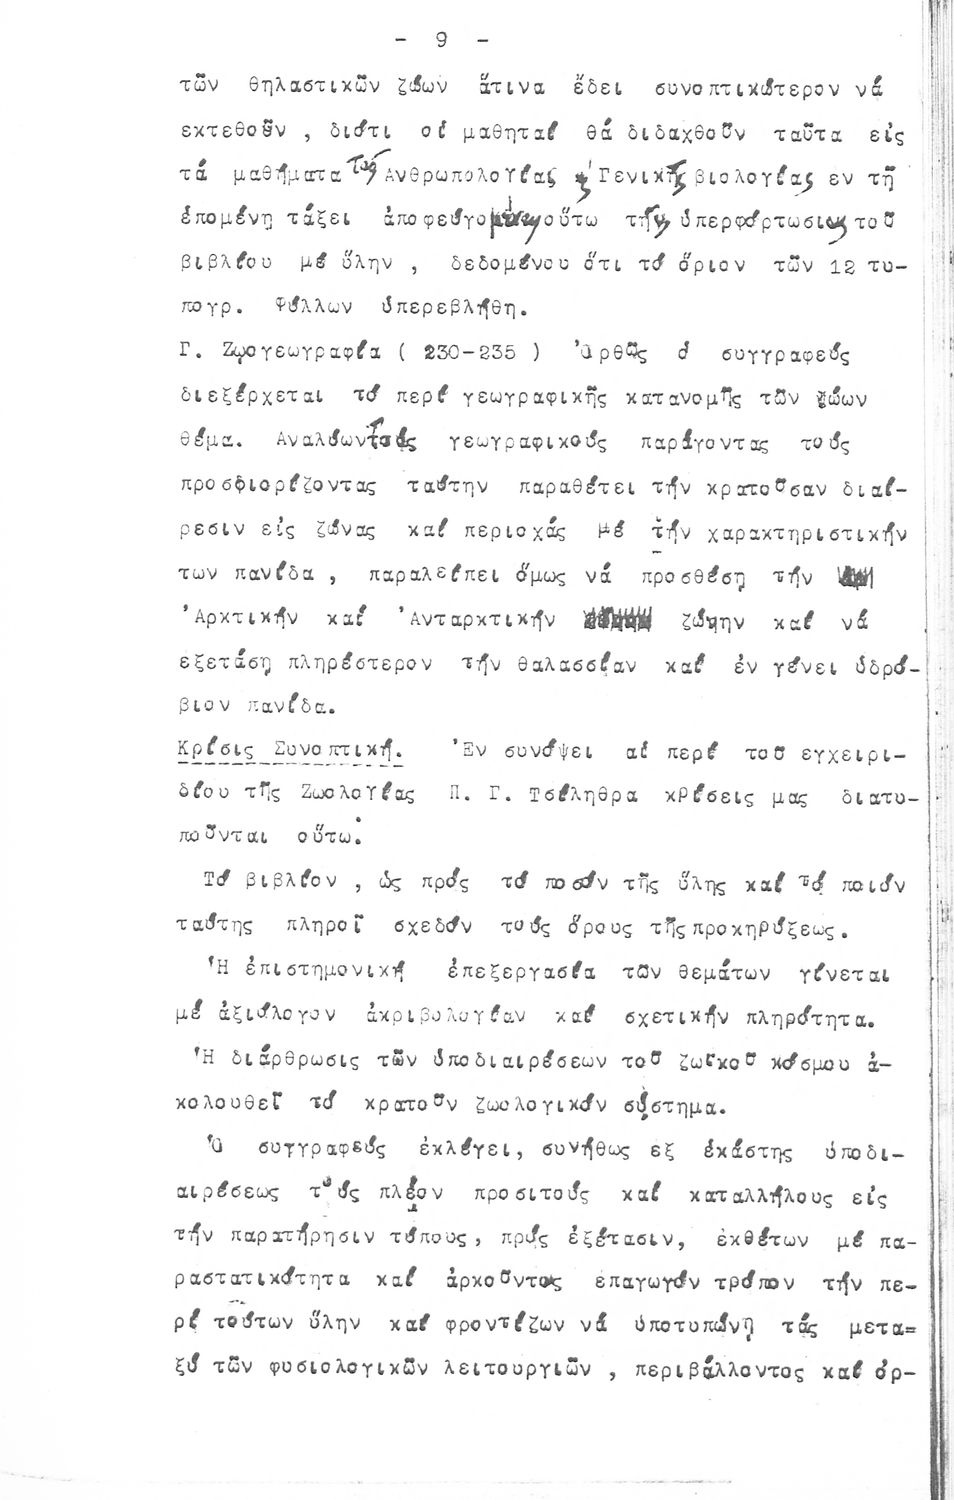 - 9 -
τῶν θηλαστικῶν ζώων ἅτινα ἔδει συνοπτικώτερον νά
εκτεθοῦν , διότι οἱ μαθηταί θά διδαχθοῦν ταῦτα εἰς
τά μαθήματα τῆς Ἀνθρωπολογίας ἤ Γενικῆς βιολογίας εν τῇ
ἑπομένῃ τάξει οὕτω τήν ὑπερφόρτωσιν τοῦ
βιβλίου μέ ὕλην , δεδομένου ὅτι τό ὅριον τῶν 12 τυ-
πογρ. Φύλλων ὑπερεβλήθη.
Γ. Ζῳογεωγραφία ( 230-235 ) Ὀρθῶς ὁ συγγραφεύς
διεξέρχεται τό περί γεωγραφικῆς κατανομῆς τῶν ζώων
θέμα. Αναλύων τούς γεωγραφικούς παράγοντας τούς
προσδιορίζοντας ταύτην παραθέτει τήν κρατοῦσαν διαί-
ρεσιν εἰς ζώνας καί περιοχάς μέ τήν χαρακτηριστικήν
των πανίδα , παραλείπει ὅμως νά προσθέσῃ τήν
Ἀρκτικήν καί Ἀνταρκτικήν ζώνην καί νά
εξετάσῃ πληρέστερον τήν θαλασσίαν καί ἐν γένει ὑδρό-
βιον πανίδα.
Κρίσις Συνοπτική. Ἐν συνόψει αἱ περί τοῦ εγχειρι-
δίου τῆς Ζωολογίας Π. Γ. Τσίληθρα κρίσεις μας διατυ-
ποῦνται οὕτω:
Τό βιβλίον , ὡς πρός τό ποσόν τῆς ὕλης καί τό ποιόν
ταύτης πληροῖ σχεδόν τούς ὅρους τῆς προκηρύξεως.
Ἡ ἐπιστημονική ἐπεξεργασία τῶν θεμάτων γίνεται
μέ ἀξιόλογον ἀκριβολογίαν καί σχετικήν πληρότητα.
Ἡ διάρθρωσις τῶν ὑποδιαιρέσεων τοῦ ζωϊκοῦ κόσμου ἀ-
κολουθεῖ τό κρατοῦν ζωολογικόν σύστημα.
Ὁ συγγραφεύς ἐκλέγει, συνήθως εξ ἑκάστης ὑποδι-
αιρέσεως τούς πλέον προσιτούς καί καταλλήλους εἰς
τήν παρατήρησιν τύπους, πρός ἐξέτασιν, ἐκθέτων μέ πα-
ραστατικότητα καί ἀρκούντως επαγωγόν τρόπον τήν πε-
ρί τούτων ὕλην καί φροντίζων νά ὑποτυπώνῃ τάς μετα=
ξύ τῶν φυσιολογικῶν λειτουργιῶν , περιβάλλοντος καί ὀρ-